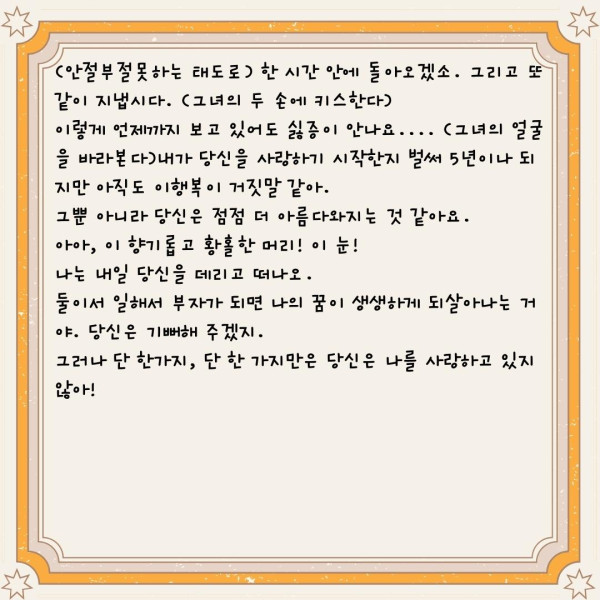 (안절부절못하는 태도로) 한 시간 안에 돌아오겠소. 그리고 또
같이 지냅시다. (그녀의 두 손에 키스한다)
이렇게 언제까지 보고 있어도 싫증이 안나요.... (그녀의 얼굴
을 바라본다)내가 당신을 사랑하기 시작한지 벌써 5년이나 되
지만 아직도 이행복이 거짓말 같아.
그뿐 아니라 당신은 점점 더 아름다와지는 것 같아요.
아아, 이 향기롭고 황홀한 머리! 이 눈!
나는 내일 당신을 데리고 떠나오.
둘이서 일해서 부자가 되면 나의 꿈이 생생하게 되살아나는 거
야. 당신은 기뻐해 주겠지.
그러나 단 한가지, 단 한 가지만은 당신은 나를 사랑하고 있지
않아!